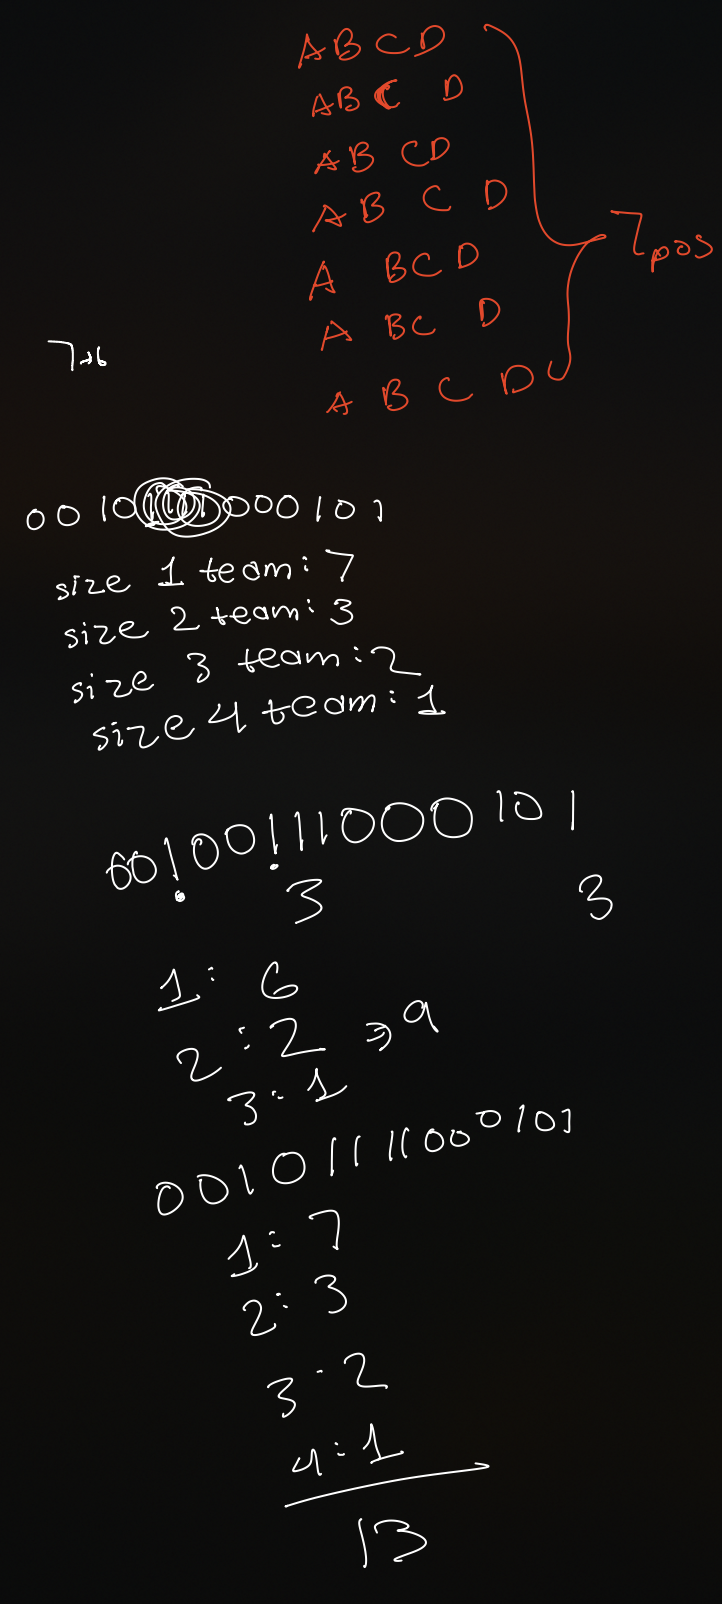 A B C D
A B C D
A B C D
A B C D
A B C D
A B C D
A B C D
7 pos
0 0 1 0 0 0 0 1 0 1
size 1 team: 7
size 2 team: 3
size 3 team: 2
size 4 team: 1
0 0 1 0 0 1 1 1 0 0 0 1 0 1
3 3
1: 6
2: 2 ⇒ 9
3: 1
0 0 1 0 1 1 1 1 1 0 0 0 1 0 1
1: 7
2: 3
3: 2
4: 1
13